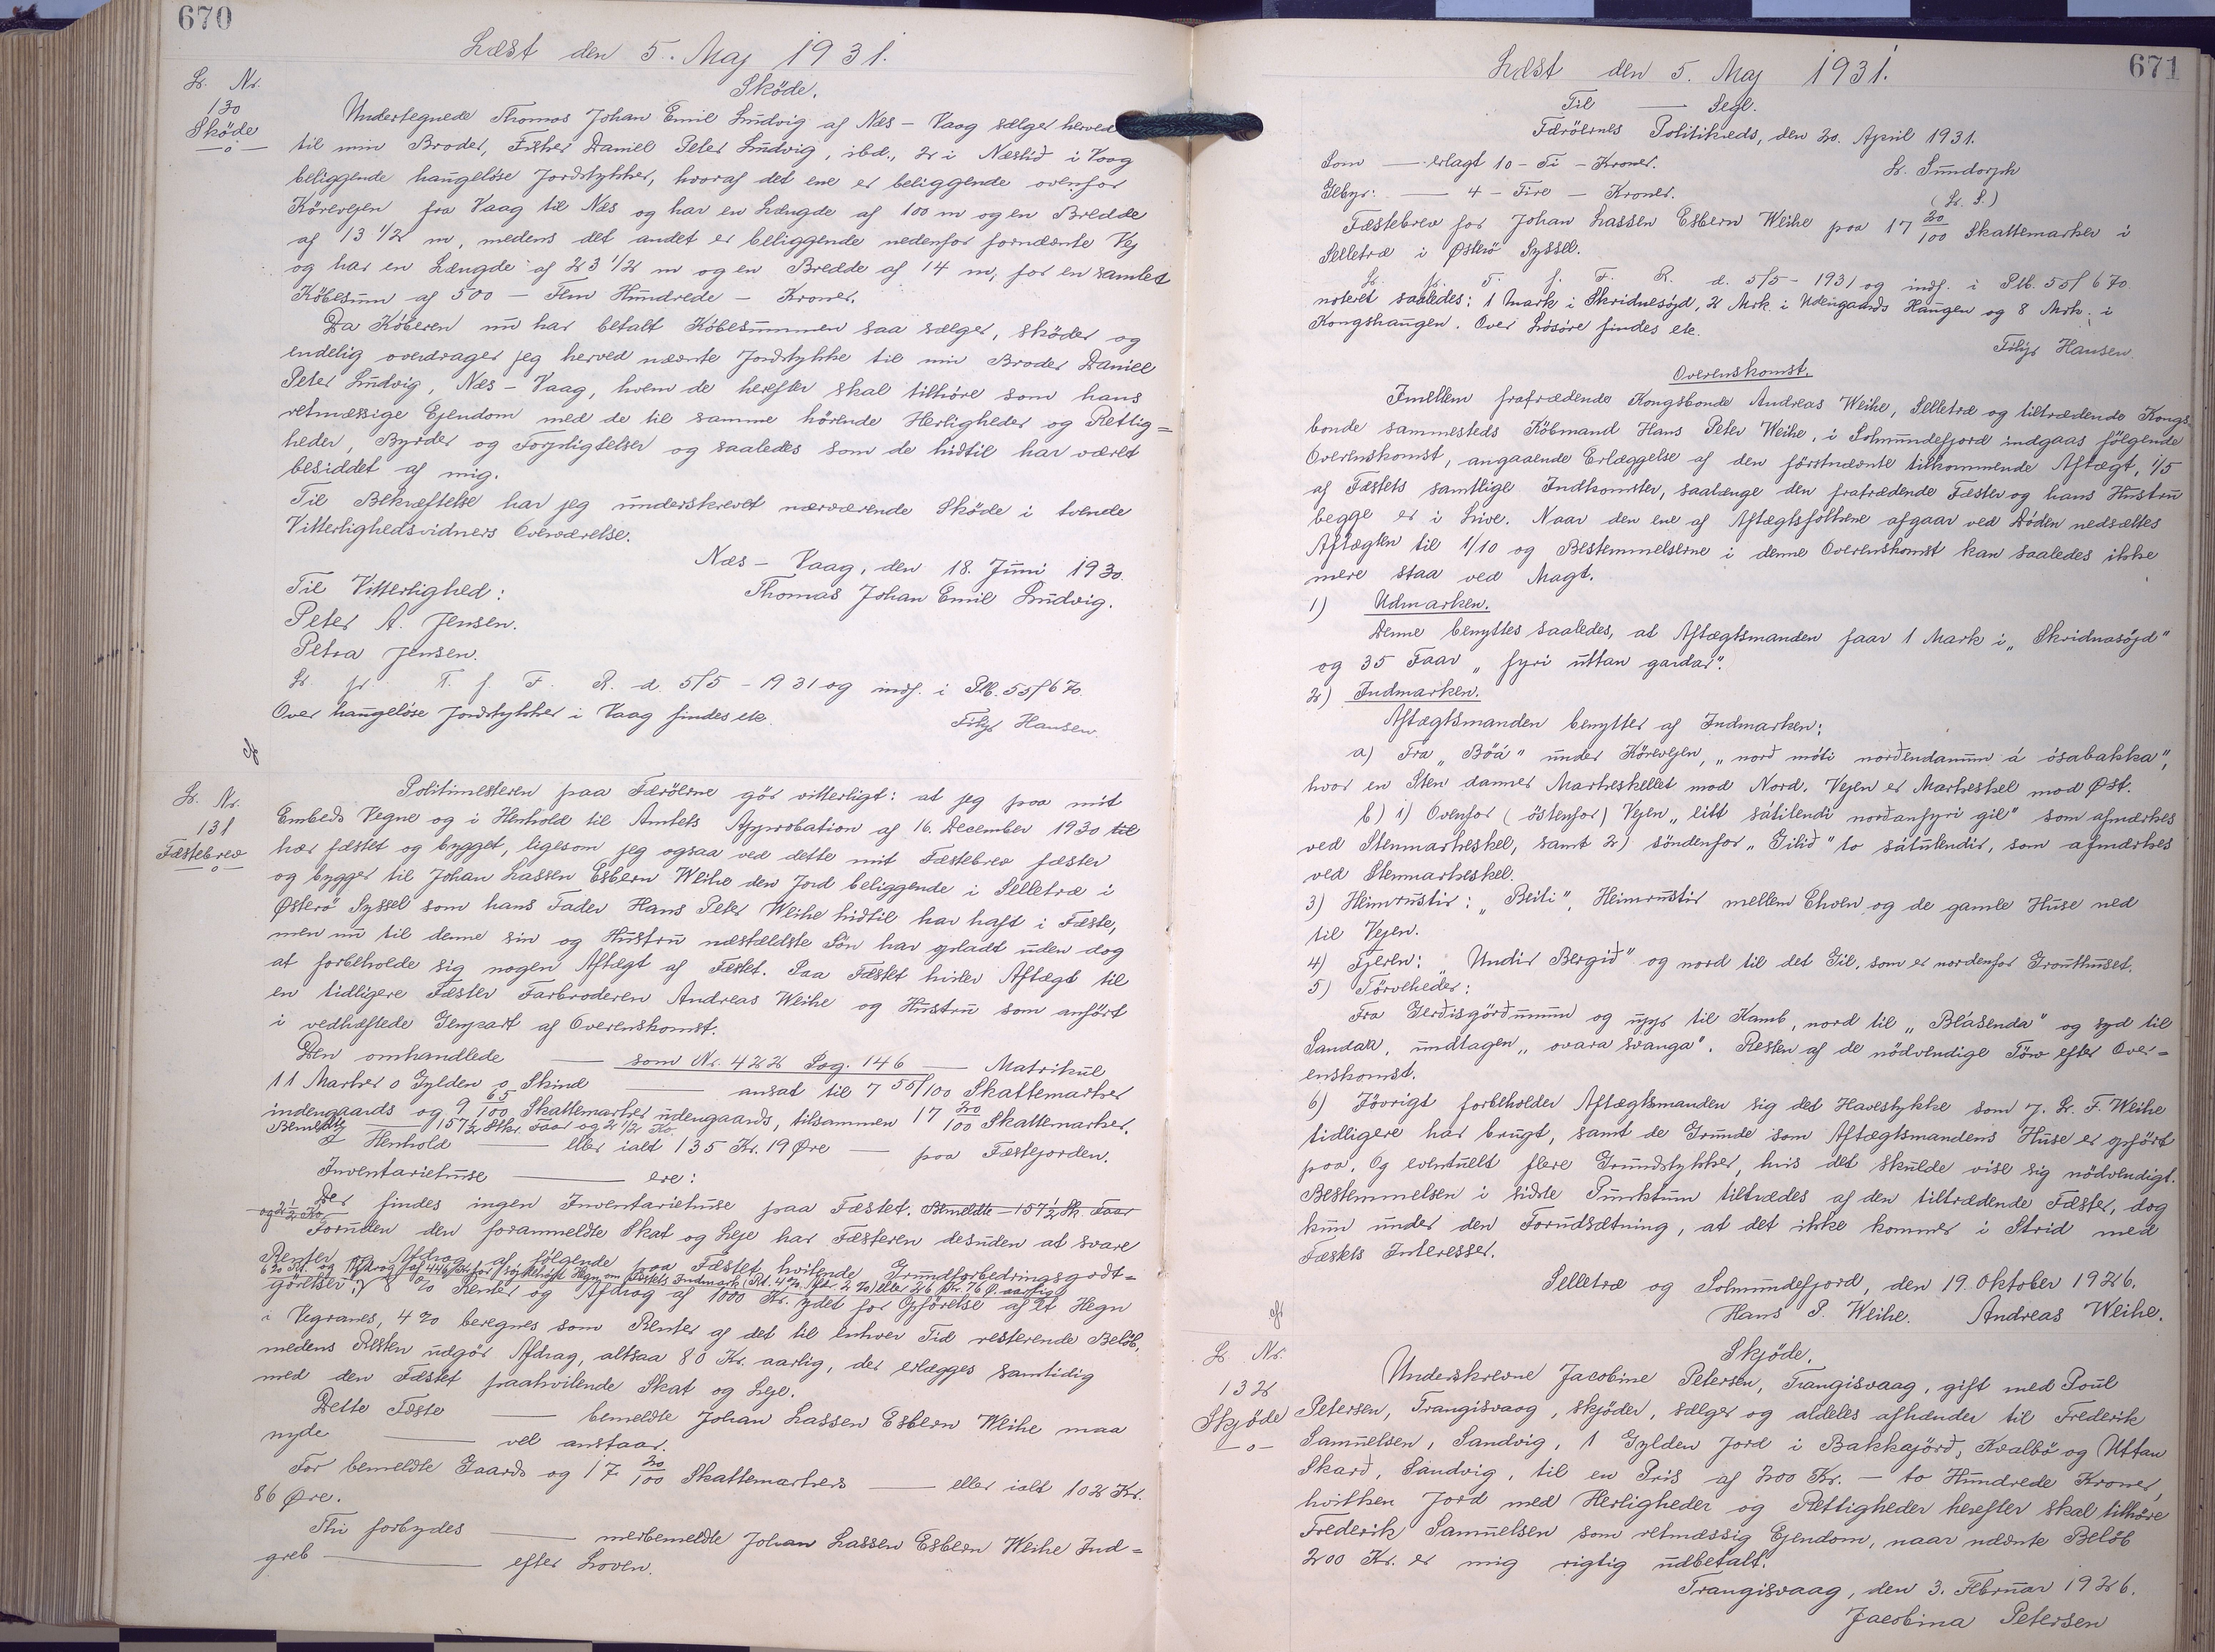 670
Læst den 5. Maj 1931.
Lb. Nr.
130
Sköde
—o—
Sköde.
Undertegnede Thomas Johan Emil Ludvig af Næs - Vaag sælger herved
til min Broder, Fisker Daniel Peter Ludvig, ibd., 2 i Næslið i Vaag
beliggende haugelöse Jordstykker, hvoraf det ene er beliggende ovenfor
Körevejen fra Vaag til Næs og har en Længde af 100 m og en Bredde
af 13 1/2 m, medens det andet er beliggende nedenfor fornævnte Vej
og har en Længde af 23 1/2 m og en Bredde af 14 m, for en samlet
Köbesum af 500 - Fem Hundrede - Kroner.
Da Köberen nu har betalt Köbesummen saa sælger, sköder og
endelig overdrager jeg herved nævnte Jordstykke til min Broder Daniel
Peter Ludvig, Næs - Vaag, hvem de herefter skal tilhöre som hans
retmæssige Ejendom med de til samme hörende Herligheder og Rettig=
heder, Byrder og Forpligtelser og saaledes som de hidtil har været
besiddet af mig.
Til Bekræftelse har jeg underskrevet nærværende Sköde i tvende
Vitterlighedsvidners Overværelse.
Næs - Vaag, den 18. Juni 1930.
Til Vitterlighed:
Thomas Johan Emil Ludvig.
Peter A. Jensen.
Petra Jensen.
L. f. T. f. F. R. d. 5/5 - 1931 og indf. i Plb. 55f 670
Over haugelöse Jordstykker i Vaag findes ete.
Filip Hansen.
Lb. Nr.
131
Fæstebrev
—o—
Politimesteren paa Færöerne gör vitterligt: at jeg paa mit
Embeds Vegne og i Henhold til Amtets Approbation af 16. December 1930 til
har fæstet og bygget, ligesom jeg ogsaa ved dette mit Fæstebrev fæster
og bygger til Johan Lassen Esbern Weihe den Jord beliggende i Selletræ i
Østerö Syssel som hans Fader Hans Peter Weihe hidtil har haft i Fæste,
men nu til denne sin og Hustru næstældste Sön har opladt uden dog
at forbeholde sig nogen Aftægt af Fæstet. Paa Fæstet hviler Aftægt til
en tidligere Fæster Farbroderen Andreas Weihe og Hustru som anfört
i vedhæftede Genpart af Overenskomst.
Den omhandlede — som Nr. 422 Pag. 146 — Matrikul
11 Marker 0 Gylden 0 Skind ansat til 7 55/100 Skattemarker
indengaards og 9 65/100 Skattemarker udengaards, tilsammen 17 20/100 Skattemarker.
Bemeldte — 157 1/2 Stkr. Faar og 2 1/2 Ko
I Henhold — eller ialt 135 Kr. 19 Øre — paa Fæstejorden.
Inventariehuse — ere:
Der findes ingen Inventariehuse paa Fæstet. Bemeldte - 157 1/2 Stk Faar
og 2 1/2 Ko
Foruden den foranmeldte Skat og Leje har Fæsteren desuden at svare
Renter og Afdrag af fölgende paa Fæstet hvilende Grundforbedringsgodt=
görelser: 8 % Renter og Afdrag af 1000 Kr. ydet for Opförelse af et Hegn
i Vegranes, 4 % beregnes som Renter af det til enhver Tid resterende Belöb,
medens Resten udgör Afdrag, altsaa 80 Kr. aarlig, der erlægges samtidig
med den Fæstet paahvilende Skat og Leje.
Dette Fæste — bemeldte Johan Lassen Esbern Weihe maa
nyde — vel anstaar.
For bemeldte Gaards og 17 20/100 Skattemarkers — eller ialt 102 Kr.
86 Øre.
Thi forbydes — merbemeldte Johan Lassen Esbern Weihe Ind=
greb — efter Loven.
671
Læst den 5. Maj 1931.
Til — Segl.
Færöernes Politikreds, den 20. April 1931.
Som — erlagt 10 - Ti - Kroner.
L. Sundorph
Gebyr: — 4 - Fire - Kroner.
(L. S.)
Fæstebrev for Johan Lassen Esbern Weihe paa 17 20/100 Skattemarker i
Selletræ i Østerö Syssel.
L. f. T. f. F. R. d. 5/5 - 1931 og indf. i Plb. 55f 670
noteret saaledes: 1 Mark i Skridnasöjd, 2 Mrk. i Udengaards Haugen og 8 Mrk. i
Kongshaugen. Over Lösöre findes ete.
Filip Hansen.
Overenskomst.
Imellem fratrædende Kongsbonde Andreas Weihe, Selletræ og tiltrædende Kongs
bonde sammesteds Köbmand Hans Peter Weihe, i Solmundefjord indgaas fölgende
Overenskomst, angaaende Erlæggelse af den förstnævnte tilkommende Aftægt, 1/5
af Fæstets samtlige Indkomster, saalænge den fratrædende Fæster og hans Hustru
begge er i Live. Naar den ene af Aftægtsfolkene afgaar ved Döden nedsættes
Aftægten til 1/10 og Bestemmelserne i denne Overenskomst kan saaledes ikke
mere staa ved Magt.
1) Udmarken.
Denne benyttes saaledes, at Aftægtsmanden faar 1 Mark i „Skridnasöjd"
og 35 Faar „fyri uttan gardar".
2) Indmarken.
Aftægtsmanden benytter af Indmarken:
a) Fra „Böá" under Körevejen, „norð móti norðendanum á ósabakka",
hvor en Sten danner Markeskellet mod Nord. Vejen er Markeskel mod Øst.
b) 1) Ovenfor (östenfor) Vejen „eitt sátilendi norðanfyri gil" som afmærkes
ved Stenmarkeskel, samt 2) söndenfor „Gilið" to sátulendir, som afmærkes
ved Stenmarkeskel.
3) Heimrustir: „Beiti", Heimrustir mellem Elven og de gamle Huse ned
til Vejen.
4) Fjeren: „Undir Bergið" og nord til det Gil, som er nordenfor Grouthuset.
5) Törveheder:
Fra Gerðisgörðunum og upp til Kamb, nord til „Blásenda" og syd til
Sandar, undtagen „ovara svanga". Resten af de nödvendige Törv efter Over=
enskomst.
6) Iövrigt forbeholder Aftægtsmanden sig det Havestykke som J. L. F. Weihe
tidligere har brugt, samt de Grunde som Aftægtsmandens Huse er opfört
paa. Og eventuelt flere Grundstykker, hvis det skulde vise sig nödvendigt.
Bestemmelsen i sidste Punktum tiltrædes af den tiltrædende Fæster, dog
kun under den Forudsætning, at det ikke kommer i Strid med
Fæstets Interesser.
Selletræ og Solmundefjord, den 19. Oktober 1926.
Hans P. Weihe. Andreas Weihe.
Lb Nr.
132
Skjöde
—o—
Skjöde.
Underskrevne Jacobine Petersen, Trangisvaag, gift med Poul
Petersen, Trangisvaag, skjöder, sælger og aldeles afhænder til Frederik
Samuelsen, Sandvig, 1 Gylden Jord i Bakkajörð, Kvalbö og Uttan
Skarð, Sandvig, til en Pris af 200 Kr. - to Hundrede Kroner,
hvilken Jord med Herligheder og Rettigheder herefter skal tilhöre
Frederik Samuelsen som retmæssig Ejendom, naar nævnte Belöb
200 Kr. er mig rigtig udbetalt.
Trangisvaag, den 3. Februar 1926.
Jacobina Petersen